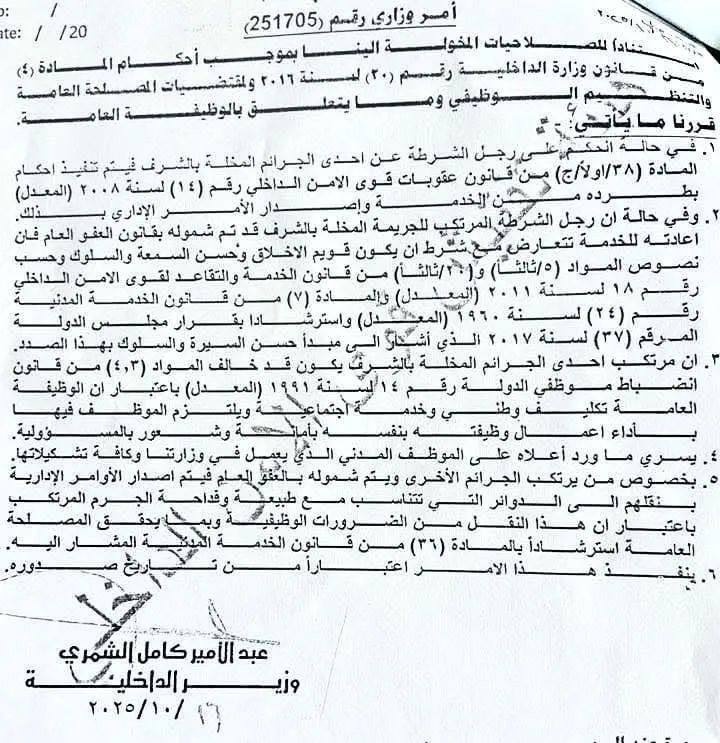 /
ate: / /20
أمر وزاري رقم (251705)
استناداً للصلاحيات المخولة الينا بموجب أحكام المادة (٤)
من قانون وزارة الداخلية رقم (٢٠) لسنة ٢٠١٦ ولمقتضيات المصلحة العامة
والتنظيم الوظيفي وما يتعلق بالوظيفة العامة.
قررنا ما يأتي:
١. في حالة الحكم على رجل الشرطة عن احدى الجرائم المخلة بالشرف فيتم تنفيذ احكام
المادة (٣٨/اولاً/ج) من قانون عقوبات قوى الامن الداخلي رقم (١٤) لسنة ٢٠٠٨ (المعدل)
بطرده من الخدمة وإصدار الأمر الإداري بذلك.
٢. وفي حالة ان رجل الشرطة المرتكب للجريمة المخلة بالشرف قد تم شموله بقانون العفو العام فان
اعادته للخدمة تتعارض مع شرط ان يكون قويم الاخلاق وحسن السمعة والسلوك وحسب
نصوص المواد (٥/ثالثاً) و(٢٠/ثالثاً) من قانون الخدمة والتقاعد لقوى الامن الداخلي
رقم ١٨ لسنة ٢٠١١ (المعدل) والمادة (٧) من قانون الخدمة المدنية
رقم (٢٤) لسنة ١٩٦٠ (المعدل) واسترشادا بقرار مجلس الدولة
المرقم (٣٧) لسنة ٢٠١٧ الذي أشار الى مبدأ حسن السيرة والسلوك بهذا الصدد.
٣. ان مرتكب احدى الجرائم المخلة بالشرف يكون قد خالف المواد (٤,٣) من قانون
انضباط موظفي الدولة رقم ١٤ لسنة ١٩٩١ (المعدل) باعتبار ان الوظيفة
العامة تكليف وطني وخدمة اجتماعية ويلتزم الموظف فيها
بأداء اعمال وظيفته بنفسه بأمانة وشعور بالمسؤولية.
٤. يسري ما ورد أعلاه على الموظف المدني الذي يعمل في وزارتنا وكافة تشكيلاتها.
٥. بخصوص من يرتكب الجرائم الأخرى ويتم شموله بالعفو العام فيتم اصدار الأوامر الإدارية
بنقلهم الى الدوائر التي تتناسب مع طبيعة وفداحة الجرم المرتكب
باعتبار ان هذا النقل من الضرورات الوظيفية وبما يحقق المصلحة
العامة استرشاداً بالمادة (٣٦) من قانون الخدمة المدنية المشار اليه.
٦. ينفذ هذا الامر اعتباراً من تاريخ صدوره.
عبد الأمير كامل الشمري
وزير الداخلية
١٦/١٠/٢٠٢٥